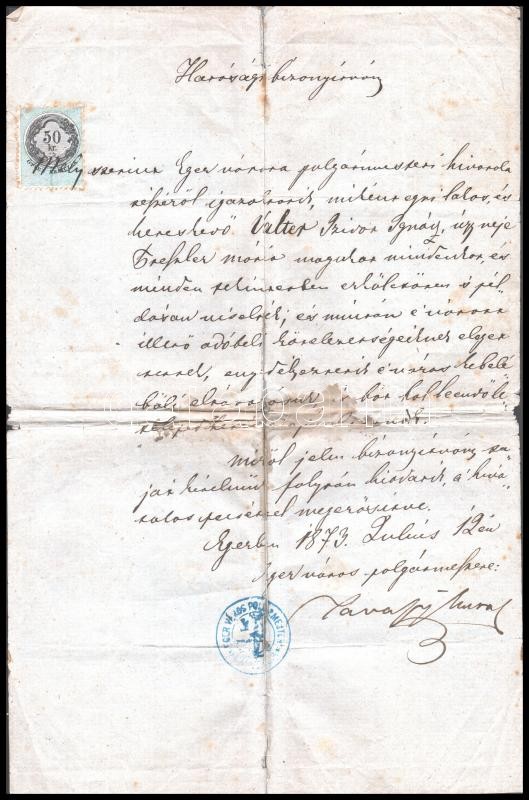 Hatósági bizonyítvány
50
kr.
Mely szerint Eger városa polgármesteri hivatala
részéről igazoltatik, miként egri lakos, és
kereskedő Valter Izidor Ignácz, úgy neje
Treszler Mária magukat mindenkor, és
minden tekintetben erkölcsösen s pél
dásan viselték, és miután é várost
illető adóbeli kötelezettségeiknek eleget
tettek, engedélyeztetik é város kebelé
ből
miről jelen bizonyítvány sa
ját kérelmük folytán kiadatik, a hiva
talos pecséttel megerősítve.
Egerben 1873. Julius 12én
Eger város polgármestere:
Tavassy Antal
EGER VÁROS POLGÁRMESTERE